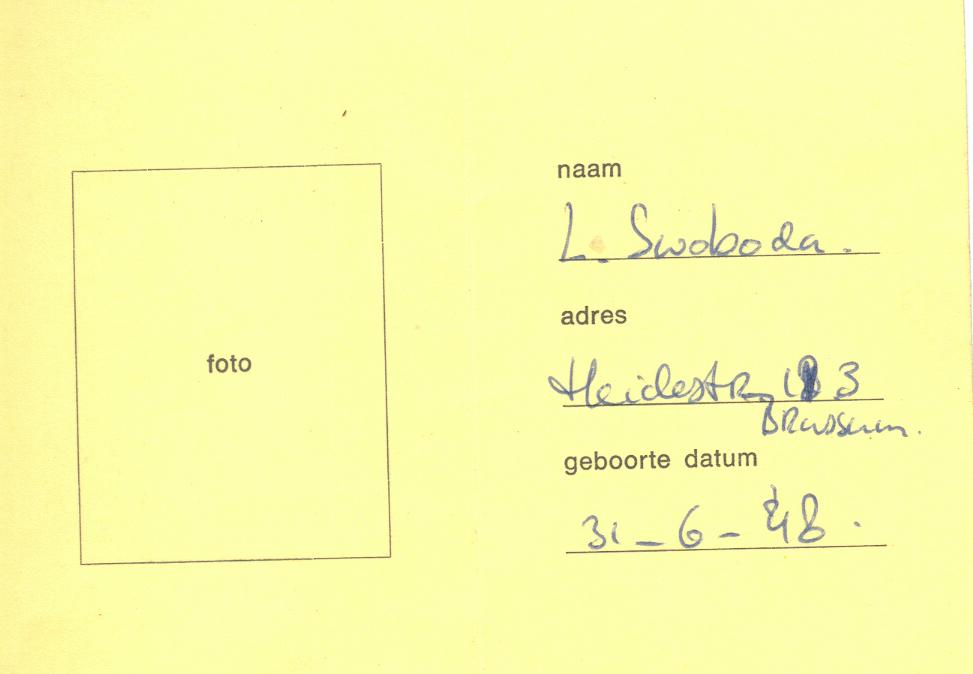 foto
naam
L. Swoboda.
adres
Heidestr 3
Brunssum.
geboorte datum
31-6-48.